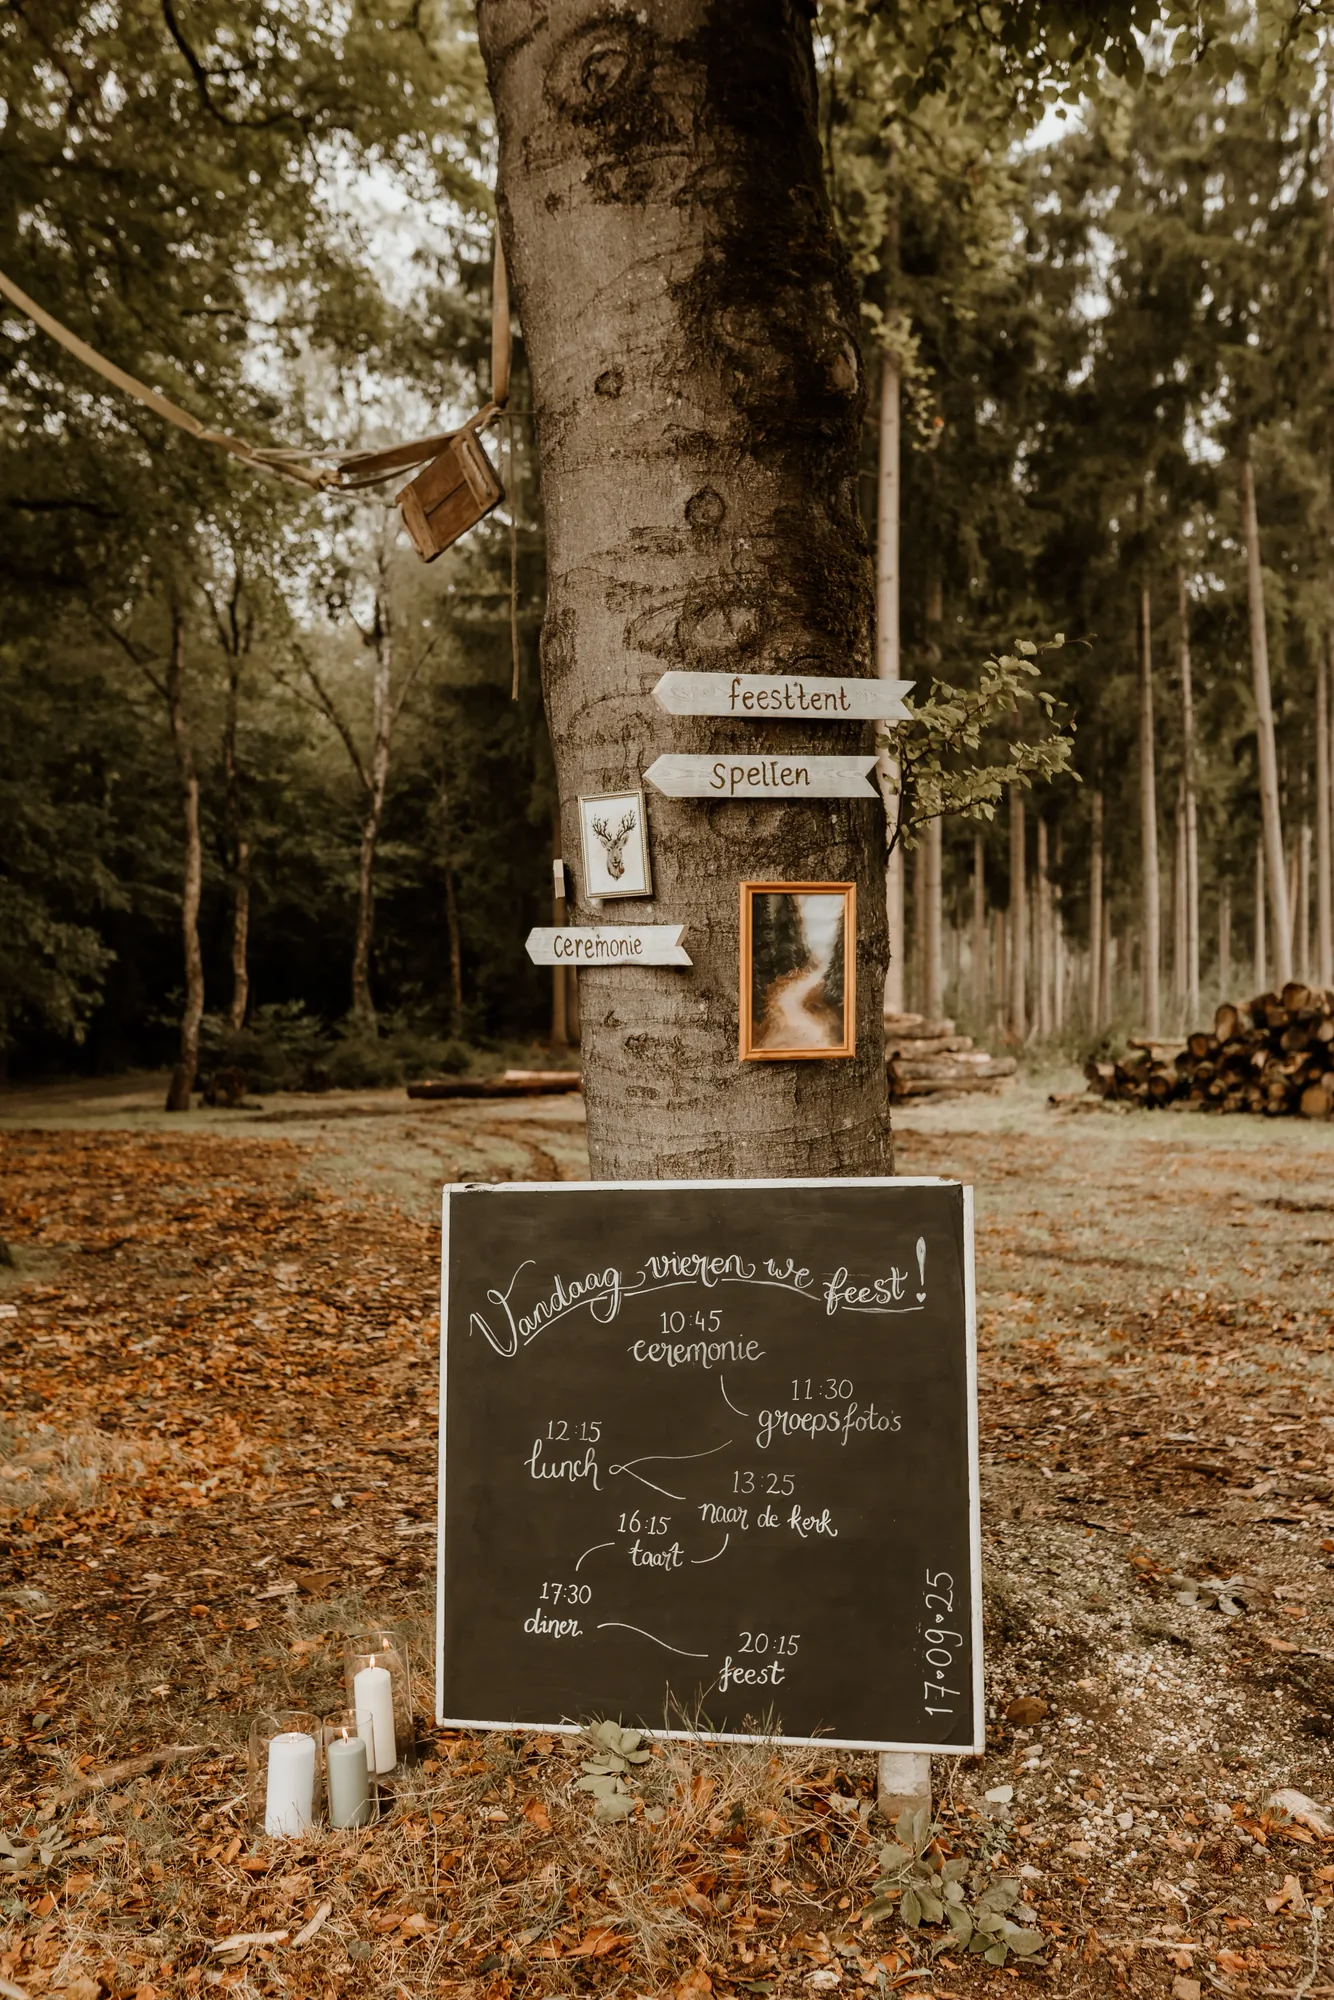 feesttent
Spellen
Ceremonie
Vandaag vieren we feest!
10:45
ceremonie
11:30
groepsfoto's
12:15
lunch
13:25
naar de kerk
16:15
taart
17:30
diner
20:15
feest
17•09•25